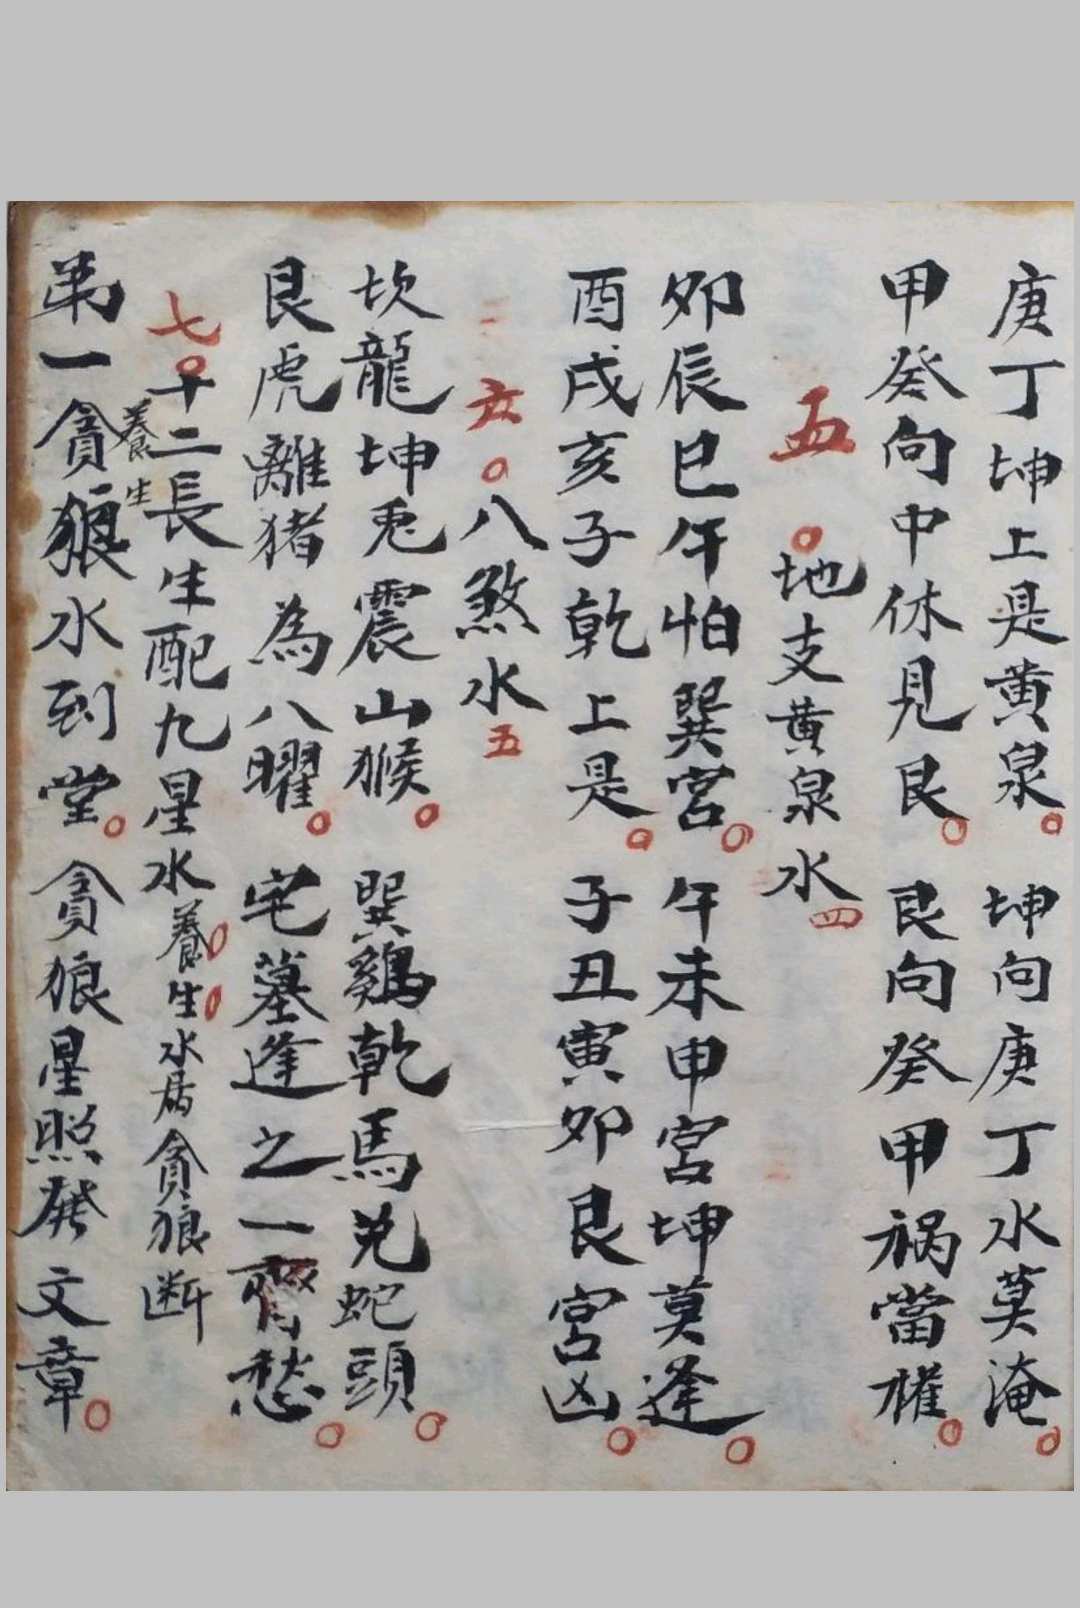 庚丁坤上是黄泉 坤向庚丁水莫淹
甲癸向中休見艮 艮向癸甲祸當權
五 地支黄泉水四
夘辰巳午怕巽宫 午未申宫坤莫逢
酉戌亥子乾上是 子丑寅夘艮宫凶
六 八煞水五
坎龍坤兎震山猴 巽鷄乾馬兑蛇頭
艮虎離猪為八曜 宅墓逢之一齊愁
七 十二長生配九星水 養生水居貪狼断
養生
弟一貪狼水到堂 貪狼星照發文章